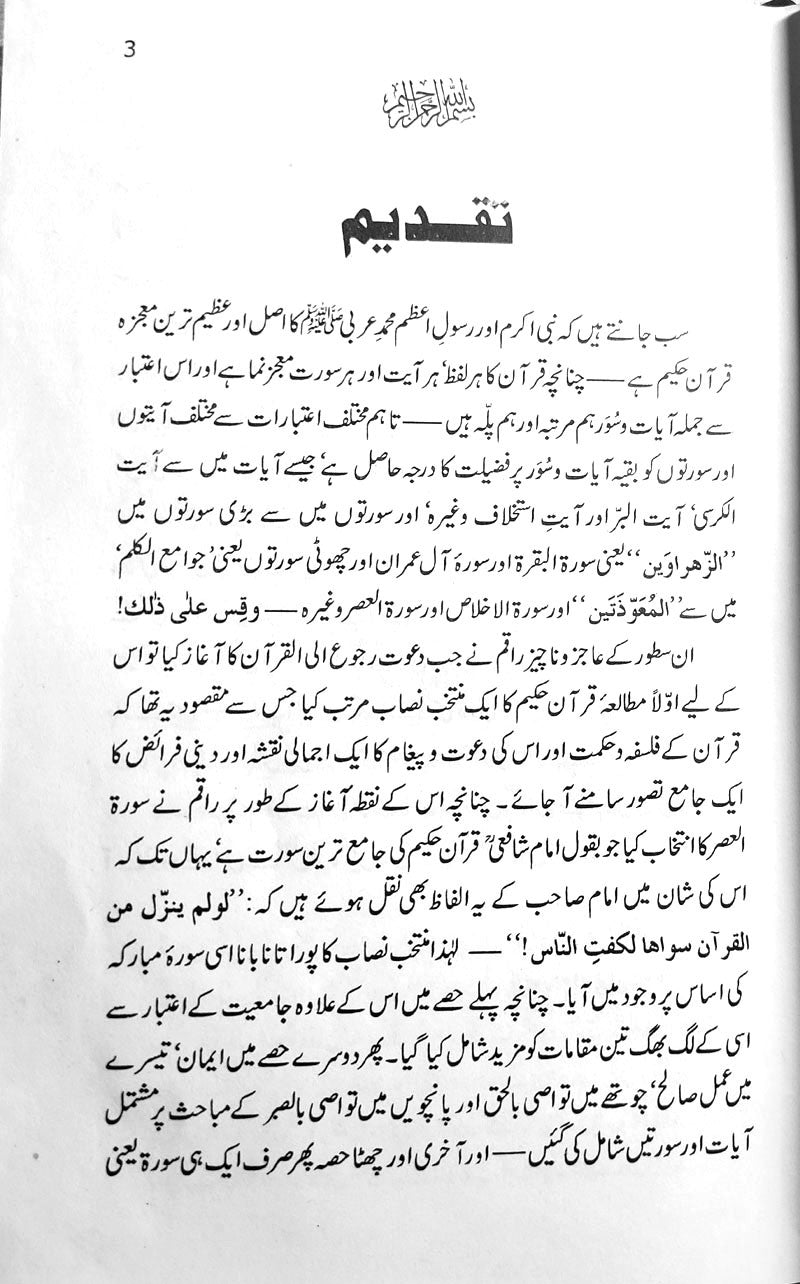 3
بسم اللہ الرحمٰن الرحیم
تقدیم
سب جانتے ہیں کہ نبی اکرم اور رسولِ اعظم محمد عربی ﷺ کا اصل اور عظیم ترین معجزہ
قرآن حکیم ہے — چنانچہ قرآن کا ہر لفظ‘ ہر آیت اور ہر سورت معجز نما ہے اور اس اعتبار
سے جملہ آیات و سُوَر ہم مرتبہ اور ہم پلّہ ہیں — تاہم مختلف اعتبارات سے مختلف آیتوں
اور سورتوں کو بقیہ آیات و سُوَر پر فضیلت کا درجہ حاصل ہے‘ جیسے آیات میں سے آیت
الکرسی‘ آیت البرّ اور آیتِ استخلاف وغیرہ‘ اور سورتوں میں سے بڑی سورتوں میں
’’الزّھراوَین‘‘ یعنی سورۃ البقرۃ اور سورۂ آل عمران اور چھوٹی سورتوں یعنی ’جوامع الکلم‘
میں سے ’’المُعَوِّذَتَین‘‘ اور سورۃ الاخلاص اور سورۃ العصر وغیرہ — وقِس علٰی ذٰلک!
ان سطور کے عاجز و ناچیز راقم نے جب دعوت رجوع الی القرآن کا آغاز کیا تو اس
کے لیے اوّلاً مطالعۂ قرآن حکیم کا ایک منتخب نصاب مرتب کیا جس سے مقصود یہ تھا کہ
قرآن کے فلسفہ و حکمت اور اس کی دعوت و پیغام کا ایک اجمالی نقشہ اور دینی فرائض کا
ایک جامع تصور سامنے آ جائے۔ چنانچہ اس کے نقطہ آغاز کے طور پر راقم نے سورۃ
العصر کا انتخاب کیا جو بقول امام شافعیؒ قرآن حکیم کی جامع ترین سورت ہے‘ یہاں تک کہ
اس کی شان میں امام صاحب کے یہ الفاظ بھی نقل ہوئے ہیں کہ: ’’لو لم ینزّل من
القرآن سواھا لکفتِ النّاس!‘‘ — لہٰذا منتخب نصاب کا پورا تانا بانا اسی سورۂ مبارکہ
کی اساس پر وجود میں آیا۔ چنانچہ پہلے حصے میں اس کے علاوہ جامعیت کے اعتبار سے
اسی کے لگ بھگ تین مقامات کو مزید شامل کیا گیا۔ پھر دوسرے حصے میں ایمان‘ تیسرے
میں عمل صالح‘ چوتھے میں تواصی بالحق اور پانچویں میں تواصی بالصبر کے مباحث پر مشتمل
آیات اور سورتیں شامل کی گئیں — اور آخری اور چھٹا حصہ پھر صرف ایک ہی سورۃ یعنی